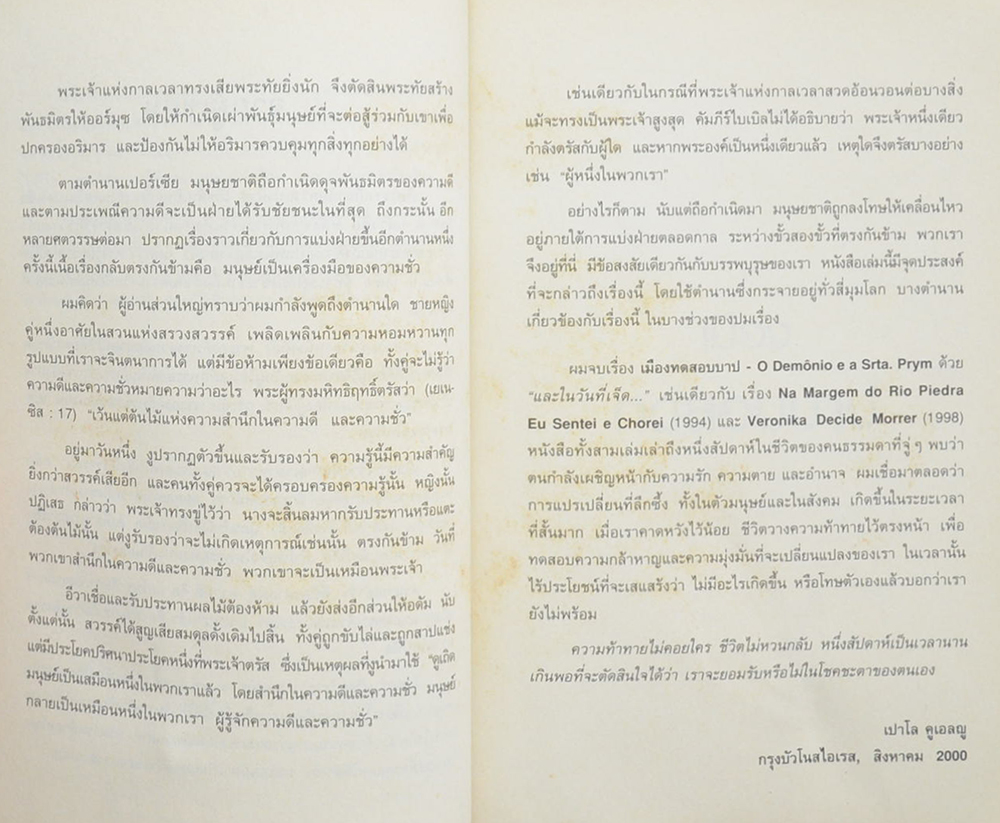 พระเจ้าแห่งกาลเวลาทรงเสียพระทัยยิ่งนัก จึงตัดสินพระทัยสร้าง
พันธมิตรให้ออร์มุซ โดยให้กำเนิดเผ่าพันธุ์มนุษย์ที่จะต่อสู้ร่วมกับเขาเพื่อ
ปกครองอริมาร และป้องกันไม่ให้อริมารควบคุมทุกสิ่งทุกอย่างได้
ตามตำนานเปอร์เซีย มนุษยชาติถือกำเนิดดุจพันธมิตรของความดี
และตามประเพณีความดีจะเป็นฝ่ายได้รับชัยชนะในที่สุด ถึงกระนั้น อีก
หลายศตวรรษต่อมา ปรากฏเรื่องราวเกี่ยวกับการแบ่งฝ่ายขึ้นอีกตำนานหนึ่ง
ครั้งนี้เนื้อเรื่องกลับตรงกันข้ามคือ มนุษย์เป็นเครื่องมือของความชั่ว
ผมคิดว่า ผู้อ่านส่วนใหญ่ทราบว่าผมกำลังพูดถึงตำนานใด ชายหญิง
คู่หนึ่งอาศัยในสวนแห่งสรวงสวรรค์ เพลิดเพลินกับความหอมหวานทุก
รูปแบบที่เราจะจินตนาการได้ แต่มีข้อห้ามเพียงข้อเดียวคือ ทั้งคู่จะไม่รู้ว่า
ความดีและความชั่วหมายความว่าอะไร พระผู้ทรงมหิทธิฤทธิ์ตรัสว่า (เยเน-
ซิส : 17) “เว้นแต่ต้นไม้แห่งความสำนึกในความดี และความชั่ว”
อยู่มาวันหนึ่ง งูปรากฏตัวขึ้นและรับรองว่า ความรู้นี้มีความสำคัญ
ยิ่งกว่าสวรรค์เสียอีก และคนทั้งคู่ควรจะได้ครอบครองความรู้นั้น หญิงนั้น
ปฏิเสธ กล่าวว่า พระเจ้าทรงขู่ไว้ว่า นางจะสิ้นลมหากรับประทานหรือแตะ
ต้องต้นไม้นั้น แต่งูรับรองว่าจะไม่เกิดเหตุการณ์เช่นนั้น ตรงกันข้าม วันที่
พวกเขาสำนึกในความดีและความชั่ว พวกเขาจะเป็นเหมือนพระเจ้า
อีวาเชื่อและรับประทานผลไม้ต้องห้าม แล้วยังส่งอีกส่วนให้อดัม นับ
ตั้งแต่นั้น สวรรค์ได้สูญเสียสมดุลดั้งเดิมไปสิ้น ทั้งคู่ถูกขับไล่และถูกสาปแช่ง
แต่มีประโยคปริศนาประโยคหนึ่งที่พระเจ้าตรัส ซึ่งเป็นเหตุผลที่งูนำมาใช้ “ดูเถิด
มนุษย์เป็นเสมือนหนึ่งในพวกเราแล้ว โดยสำนึกในความดีและความชั่ว มนุษย์
กลายเป็นเหมือนหนึ่งในพวกเรา ผู้รู้จักความดีและความชั่ว”
เช่นเดียวกับในกรณีที่พระเจ้าแห่งกาลเวลาสวดอ้อนวอนต่อบางสิ่ง
แม้จะทรงเป็นพระเจ้าสูงสุด คัมภีร์ไบเบิลไม่ได้อธิบายว่า พระเจ้าหนึ่งเดียว
กำลังตรัสกับผู้ใด และหากพระองค์เป็นหนึ่งเดียวแล้ว เหตุใดจึงตรัสบางอย่าง
เช่น “ผู้หนึ่งในพวกเรา”
อย่างไรก็ตาม นับแต่ถือกำเนิดมา มนุษยชาติถูกลงโทษให้เคลื่อนไหว
อยู่ภายใต้การแบ่งฝ่ายตลอดกาล ระหว่างขั้วสองขั้วที่ตรงกันข้าม พวกเรา
จึงอยู่ที่นี่ มีข้อสงสัยเดียวกันกับบรรพบุรุษของเรา หนังสือเล่มนี้มีจุดประสงค์
ที่จะกล่าวถึงเรื่องนี้ โดยใช้ตำนานซึ่งกระจายอยู่ทั่วสี่มุมโลก บางตำนาน
เกี่ยวข้องกับเรื่องนี้ ในบางช่วงของปมเรื่อง
ผมจบเรื่อง เมืองทดสอบบาป - O Demônio e a Srta. Prym ด้วย
“และในวันที่เจ็ด...” เช่นเดียวกับ เรื่อง Na Margem do Rio Piedra
Eu Sentei e Chorei (1994) และ Veronika Decide Morrer (1998)
หนังสือทั้งสามเล่มเล่าถึงหนึ่งสัปดาห์ในชีวิตของคนธรรมดาที่จู่ ๆ พบว่า
ตนกำลังเผชิญหน้ากับความรัก ความตาย และอำนาจ ผมเชื่อมาตลอดว่า
การแปรเปลี่ยนที่ลึกซึ้ง ทั้งในตัวมนุษย์และในสังคม เกิดขึ้นในระยะเวลา
ที่สั้นมาก เมื่อเราคาดหวังไว้น้อย ชีวิตวางความท้าทายไว้ตรงหน้า เพื่อ
ทดสอบความกล้าหาญและความมุ่งมั่นที่จะเปลี่ยนแปลงของเรา ในเวลานั้น
ไร้ประโยชน์ที่จะเสแสร้งว่า ไม่มีอะไรเกิดขึ้น หรือโทษตัวเองแล้วบอกว่าเรา
ยังไม่พร้อม
ความท้าทายไม่คอยใคร ชีวิตไม่หวนกลับ หนึ่งสัปดาห์เป็นเวลานาน
เกินพอที่จะตัดสินใจได้ว่า เราจะยอมรับหรือไม่ในโชคชะตาของตนเอง
เปาโล คูเอลญู
กรุงบัวโนสไอเรส, สิงหาคม 2000